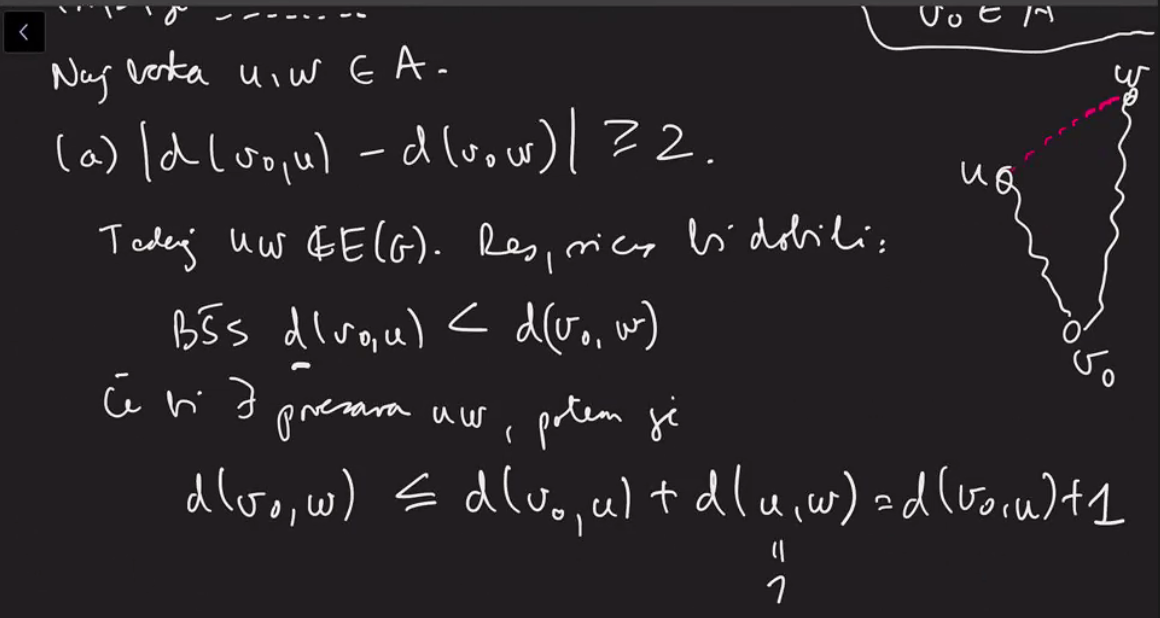 v₀ ∈ A
Naj bosta u, w ∈ A.
(a) |d(v₀,u) - d(v₀w)| ≥ 2.
Tedaj uw ∉ E(G). Res, sicer bi dobili:
BŠS d(v₀,u) < d(v₀,w)
Če bi ∃ povezava uw, potem je
d(v₀,w) ≤ d(v₀,u) + d(u,w) = d(v₀,u)+1
=
1
w
u
v₀